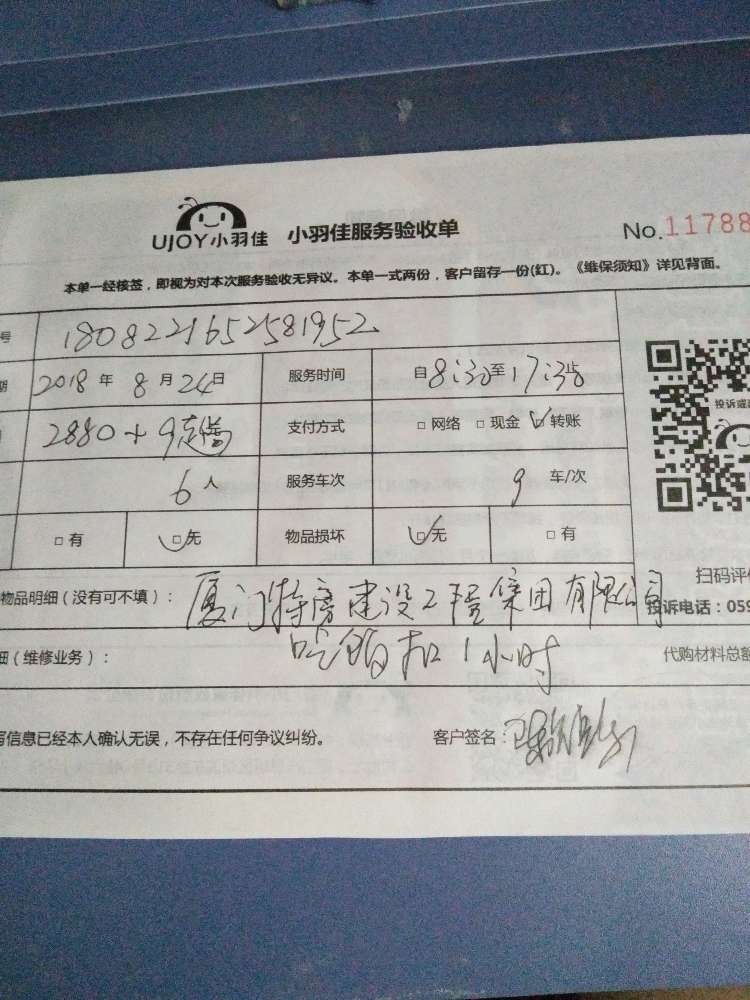 UJOY小羽佳 小羽佳服务验收单 No.11788
本单一经核签，即视为对本次服务验收无异议。本单一式两份，客户留存一份(红)。《维保须知》详见背面。
号 1808221652581952
期 2018 年 8 月 24 日 服务时间 自 8:30 至 17:30 止
2880+9趟 支付方式 □ 网络 □ 现金 ☑ 转账
6 人 服务车次 9 车/次
□ 有 ☑ 无 物品损坏 ☑ 无 □ 有
投诉或
扫码评价
物品明细（没有可不填）： 厦门特房建设工程集团有限公司
投诉电话：059
细（维修业务）： 吃饭扣1小时 代购材料总额
写信息已经本人确认无误，不存在任何争议纠纷。 客户签名：